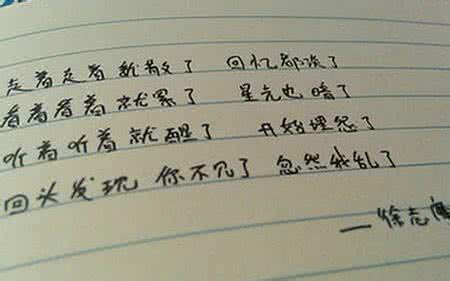 走着走着就散了 回忆都淡了
看着看着就累了 星光也暗了
听着听着就醒了 开始埋怨了
回头发现 你不见了 忽然我乱了
—徐志摩